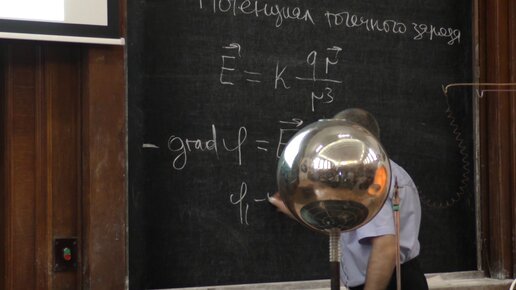 Потенциал точечного заряда
E⃗ = K qr⃗ / r³
- grad φ = E⃗
φ₁ -